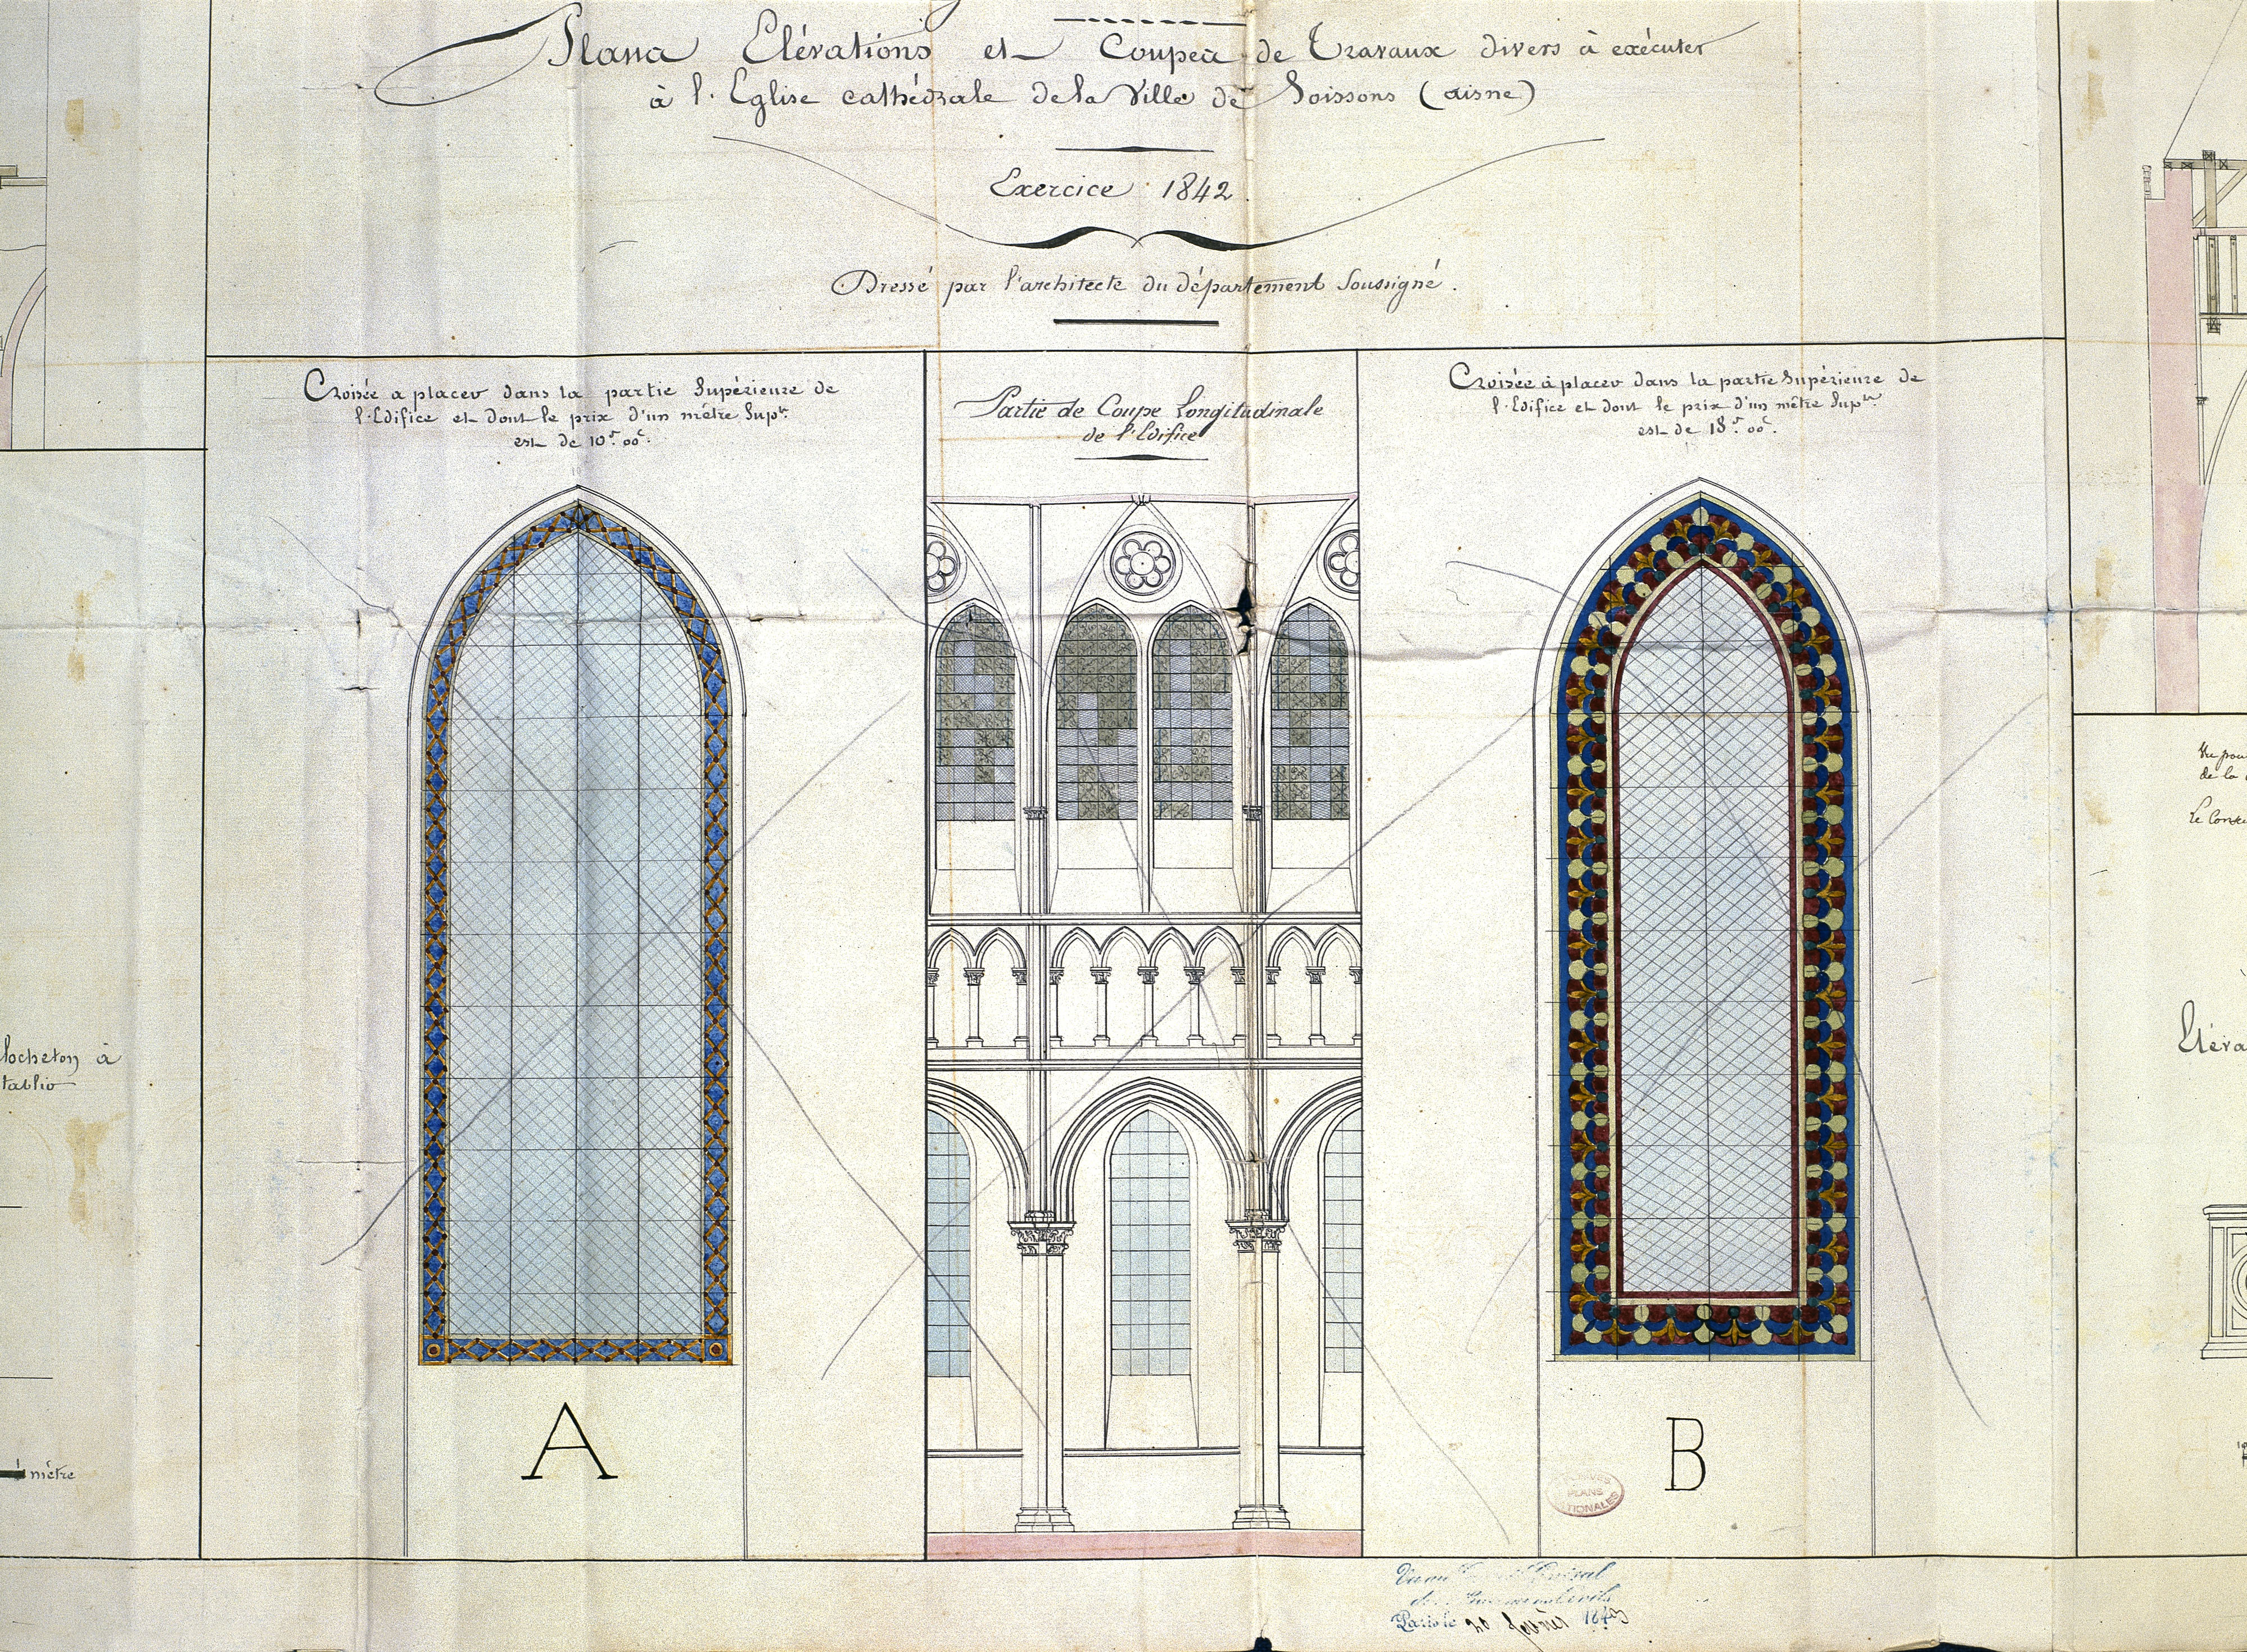 Plans Elévations et Coupes de Travaux divers à exécuter
à l'Eglise cathédrale de la Ville de Soissons (aisne)
Exercice 1842.
Dressé par l'architecte du département Soussigné.
Croisée a placer dans la partie Supérieure de
l'Edifice et dont le prix d'un mètre Sup.
est de 10f. 00c.
Partie de Coupe Longitudinale
de l'Edifice
Croisée à placer dans la partie Supérieure de
l'Edifice et dont le prix d'un mètre Sup.
est de 18f. 00c.
Vu pou
de la
Le Conse
locheton à
tablir
Eléva
1 mètre
A
B
PLANS
TIONALES
Paris le 20 février 1843